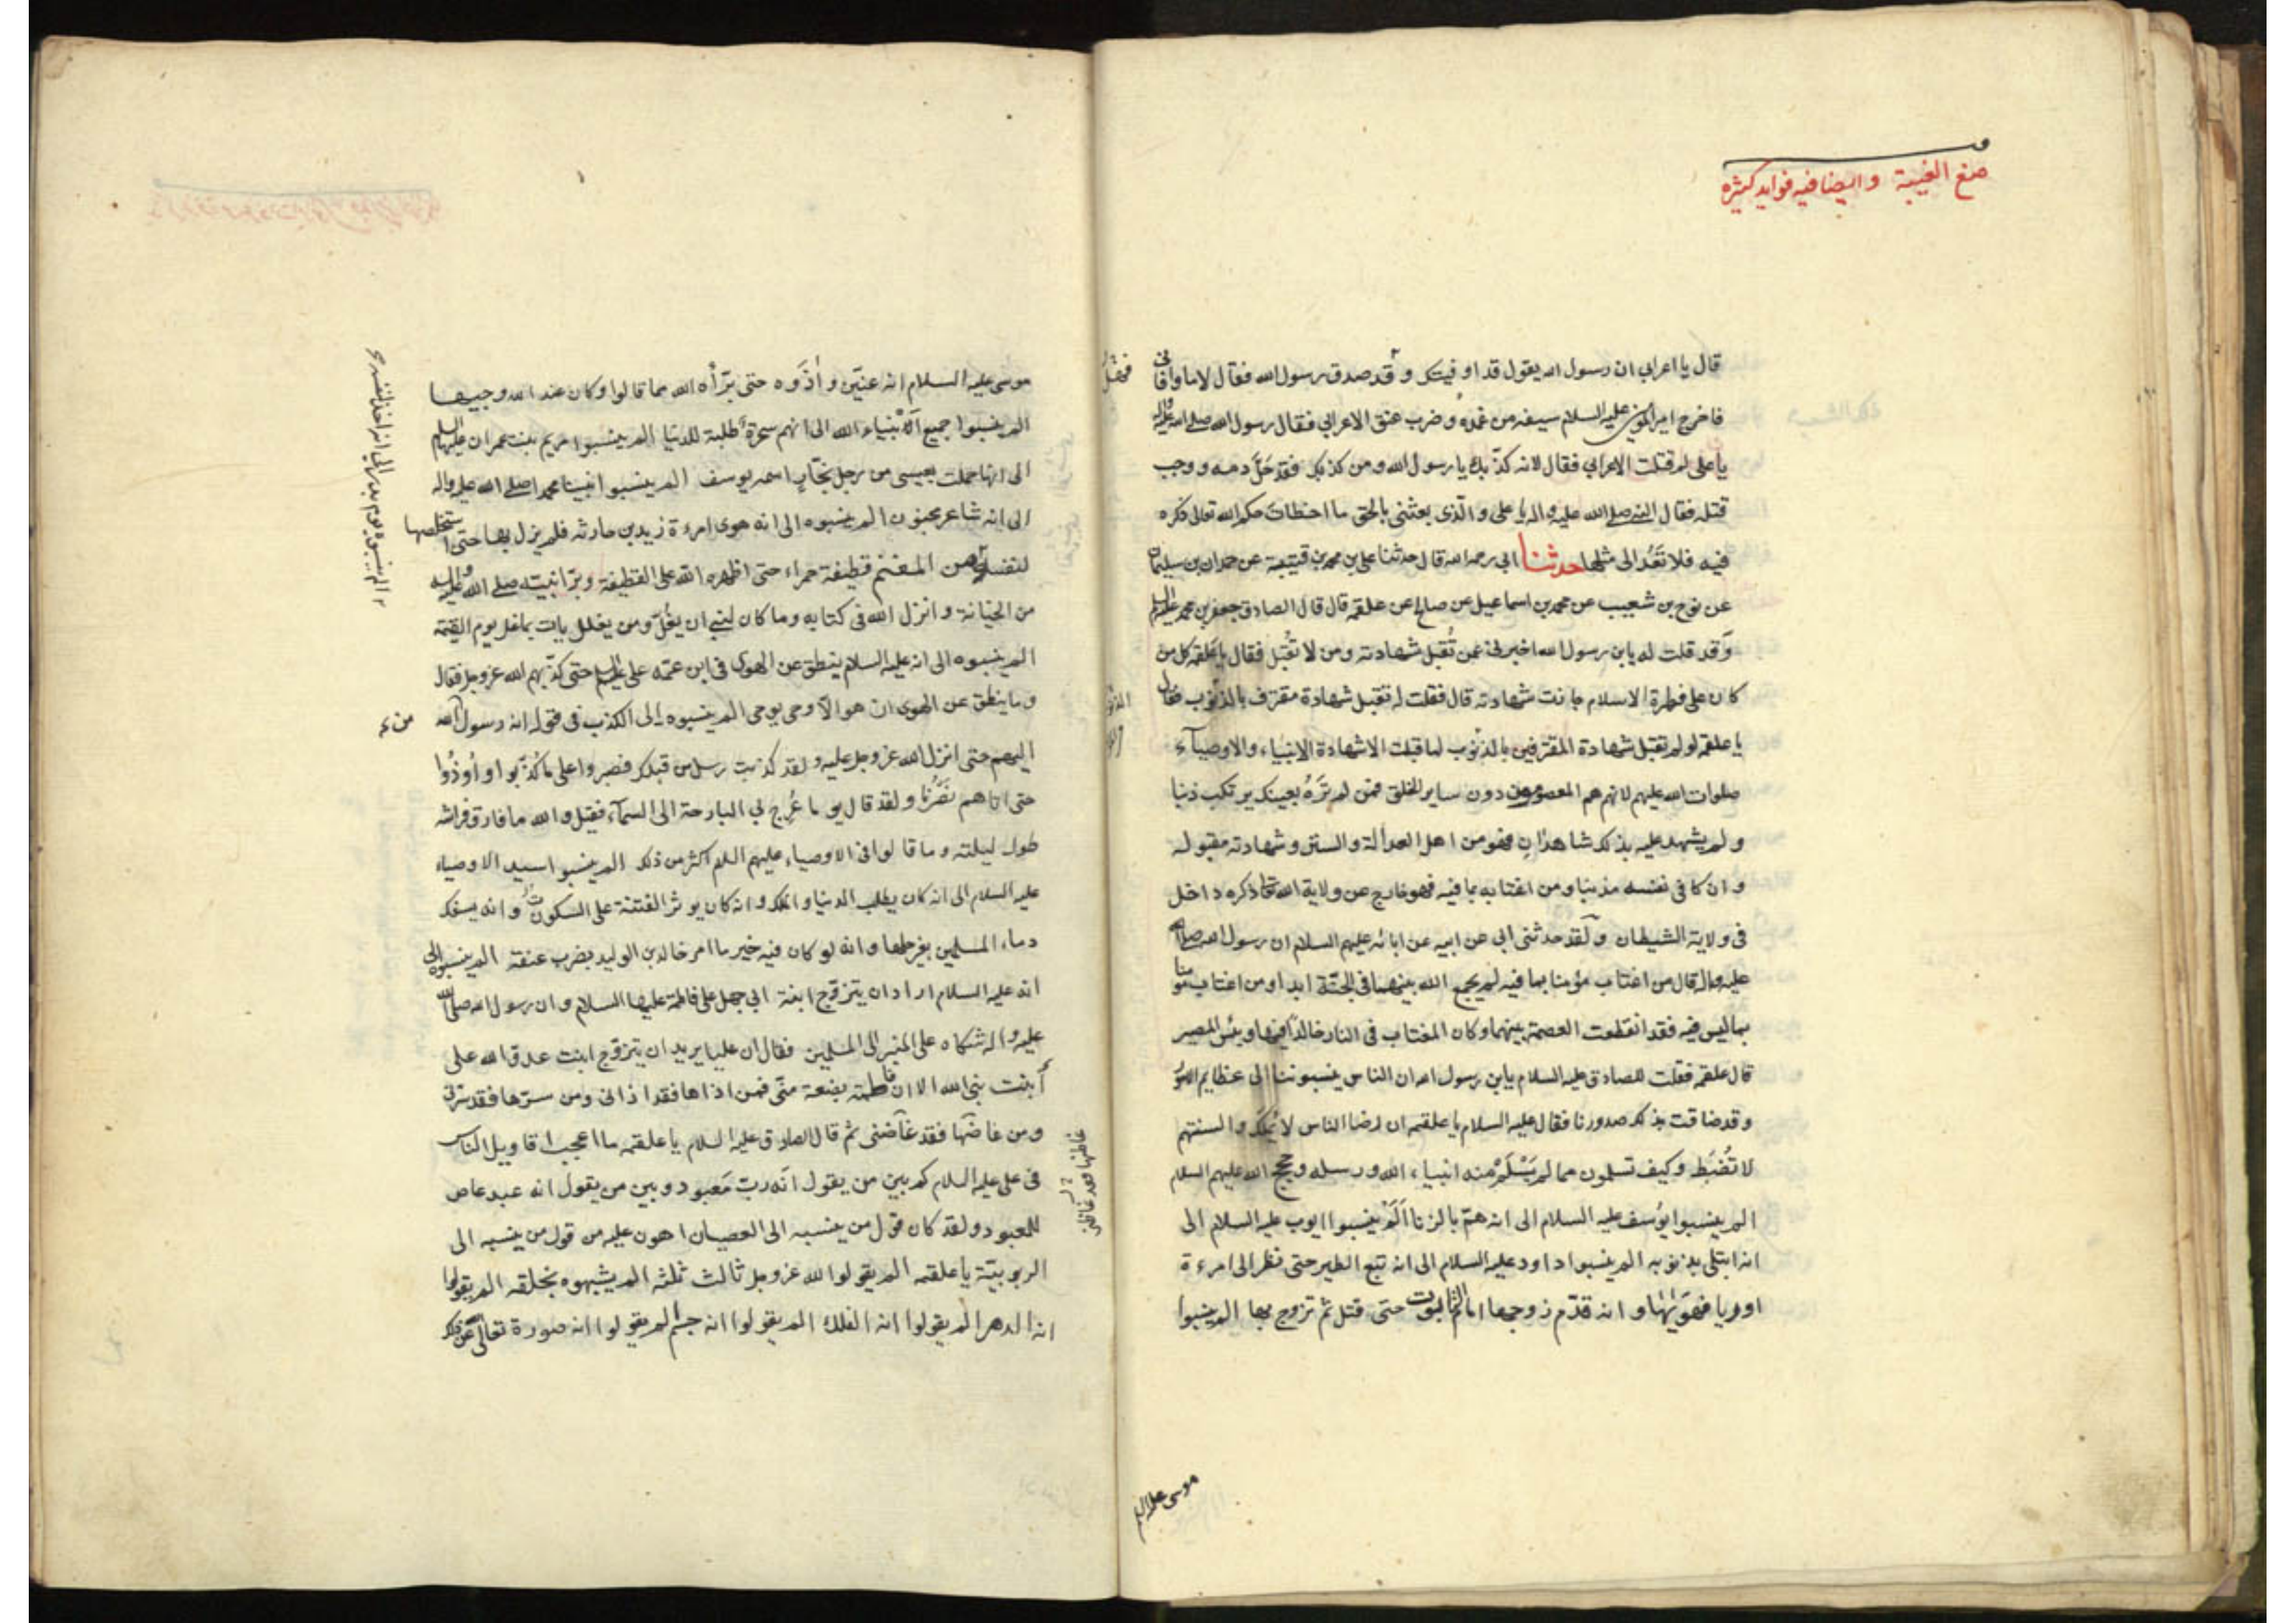 منع الغيبة وايضا فيه فوايد كثيره
قال يا اعرابي ان رسول الله يقول قد اوفيتك وقد صدق رسول الله فقال لا ما اوفاني
فاخرج امير المؤمنين عليه السلام سيفه من غمده وضرب عنق الاعرابي فقال رسول الله صلى الله عليه واله
يا علي لم قتلت الاعرابي فقال لانه كذبك يا رسول الله ومن كذبك فقد حَلَّ دمه ووجب
قتله فقال النبي صلى الله عليه واله يا علي والّذي بعثني بالحق ما اخطات حكم الله تعالى ذكره
فيه فلا تَعُد الى مثلها حدثنا ابي رحمه الله قال حدثنا علي بن محمد بن قتيبة عن حمدان بن سليمان
عن نوح بن شعيب عن محمد بن اسماعيل عن صالح عن علقمه قال قال الصادق جعفر بن محمد عليه السلام
وَقد قلت له يابن رسول الله اخبرني عمن تُقبل شهادته ومن لا تُقبل فقال يا علقمه كل من
كان على فطرة الاسلام جازت شهادته قال فقلت له تقبل شهادة مقترف بالذنوب فقال
يا علقمه لو لم تقبل شهادة المقترفين بالذنوب لما قبلت الا شهادة الانبياء والاوصياء
صلوات الله عليهم لانهم هم المعصومون دون ساير الخلق فمن لم تَرَهُ بعينك يرتكب ذنبا
ولم يشهد عليه بذلك شاهدانِ فهو من اهل العدالة والستر وشهادته مقبوله
وان كا في نفسه مذنبا ومن اغتابه بما فيه فهو خارج عن ولاية الله تعا ذكره داخل
في ولاية الشيطان ولَقد حدثني ابي عن ابيه عن ابائه عليهم السلام ان رسول الله صلى الله
عليه واله قال من اغتاب مؤمنا بما فيه لم يجمع الله بينهما في الجنّة ابدا ومن اغتاب مؤمنا
بما ليس فيه فقد انقطعت العصمة بينهما وكان المغتاب في النار خالدًا فيها وبئس المصير
قال علقمه فقلت للصادق عليه السلام يابن رسول الله ان الناس ينسبوننا الى عظايم الامور
وقد ضاقت بذلك صدورنا فقال عليه السلام يا علقمه ان رضا الناس لا يُملك والسنتهم
لا تُضبَط وكيف تسلمون مما لم يَسْلَمْ منه انبياء الله ورسله وحجج الله عليهم السلام
الم ينسبوا يوُسف عليه السلام الى انه همّ بالزنا اَلَمْ ينسبوا ايوب عليه السلام الى
انه ابتلى بذنوبه الم ينسبوا داود عليه السلام الى انه تبع الطير حتى نظر الى امرءة
اوريا فهوَيها وانه قدّم زوجها امام التابوت حتى قتل ثم تزوج بها الم ينسبوا
موسى عليه السلم
موسى عليه السلام انه عنّين واٰذَوه حتى برّأه الله مما قالوا وكان عند الله وجيها
الم ينسبوا جميع اَلانْبياء الله الى انهم سحرة طلبة للدنيا الم ينسبوا مريم بنت عمران عليهما السلم
الى انها حملت بعيسى من رجل نجّارٍ اسمه يوسف الم ينسبوا نبينا محمدا صلى الله عليه واله
الى انه شاعر مجنون الم ينسبوه الى انه هوى امرءة زيد بن حارثه فلم يزل بها حتى استخلصها
لنفسه من المغنم قطيفة حمراء حتى اظهره الله على القطيفة وبرّا نبيّه صلى الله عليه واله
الم ينسبوه يوم بدر الى انه اخذ لنفسه
من الخيانة وانزل الله في كتابه وما كان لنبي ان يغُلَّ ومن يغلل يات بما غل يوم القيمة
الم ينسبوه الى انه عليه السلام ينطق عن الهوى في ابن عمّه علي عليه السلم حتى كذّبهم الله عز وجل فقال
وما ينطق عن الهوى ان هو الّا وحي يوحى الم ينسبوه الى الكذب في قوله انه رسول الله
اليهم حتى انزل الله عز وجل عليه ولقد كذبت رسل من قبلك فصبروا على ما كُذّبوا واُوذُوا
حتى اتاهم نَصْرُنا ولقد قال يوما عُرِج بي البارحة الى السمآء فقيل والله ما فارق فراشه
طول ليلته وما قالوا في الاوصياء عليهم السلم اكثر من ذلك الم ينسبوا سيد الاوصياء
عليه السلام الى انه كان يطلب الدنيا والملك وانه كان يوثر الفتنة على السكون وانه يسفك
دماء المسلمين بغير حلها وانه لو كان فيه خير ما امر خالد بن الوليد بضرب عنقه الم ينسبوه الى
انه عليه السلام اراد ان يتزوّج ابنة ابي جهل على فاطمة عليها السلام وان رسول الله صلى الله
عليه واله شكاه على المنبر الى المسلمين فقال ان عليا يريد ان يتزوّج ابنت عدو الله على
ابنت نبي الله الا ان فاطمة بضعة منّي فمن اذاها فقد اذاني ومن سرّها فقد سرّني
ومن غاضها فقد غاضني ثم قال الصادق عليه السلام يا علقمه ما اعجب اقاويل الناس
غاظها فقد غاظني
في علي عليه السلام كم بين من يقول انّه ربّ مَعبود وبين من يقول انه عبد عاص
للمعبود ولقد كان قول من ينسبه الى العصيان اهون عليه من قول من ينسبه الى
الربوبيّة يا علقمه الم يقولوا لله عز وجل ثالث ثلثه الم يشبهوه بخلقه الم يقولوا
انه الدهر الم يقولوا انه الفلك الم يقولوا انه جسم الم يقولوا انه صورة تعالى عن ذلك